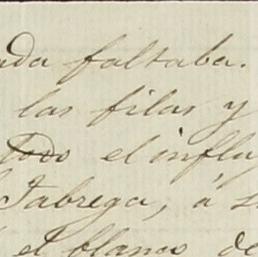 ada faltaba.
las filas y
todo el influ
Fabrega, á s
el blanco de